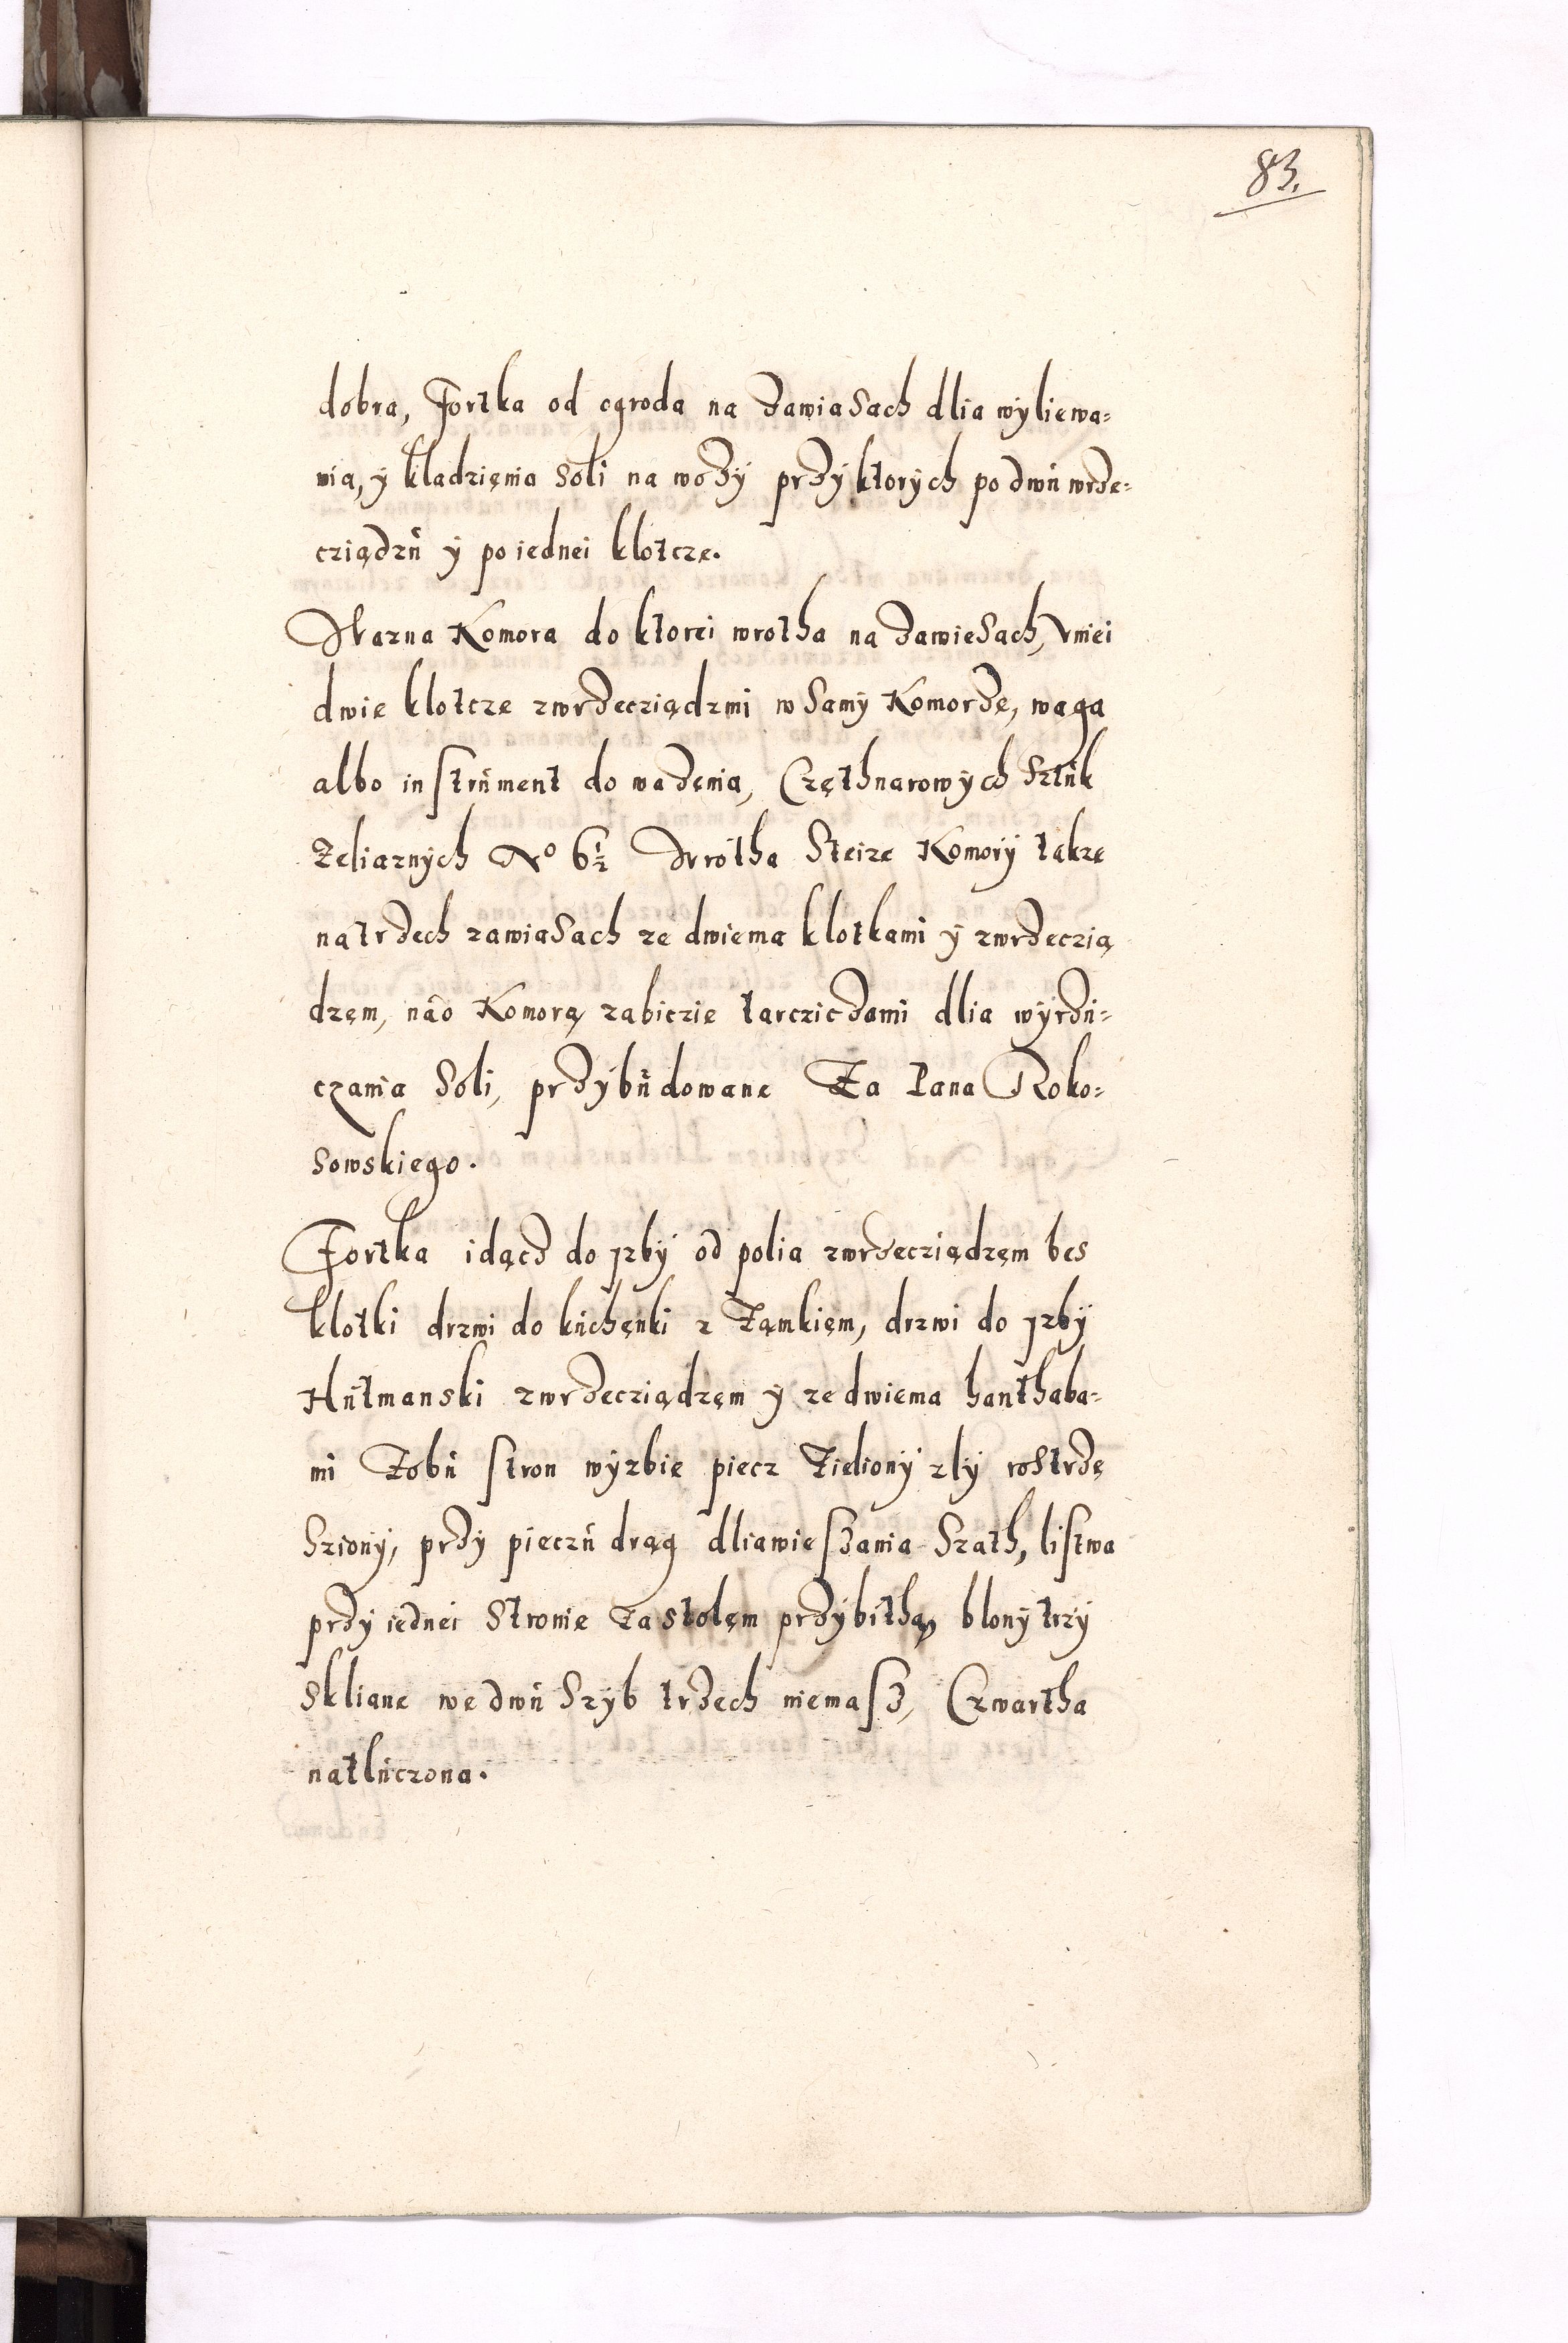 83.
dobra, Fortka od ogroda na zawiasach dlia wyliewa=
nia, y kladzięnia soli na wozy przy ktorych po dwu wrze=
cziądzu y po iednei klotcze.
Ważna Komora do ktorei wrotha na zawiesach, v niei
dwie klotcze z wrzecziądzmi w samy Komorze, waga
albo instrument doważenia, Częthnarowych sztuk
Żeliaznych No 6½ Wrotha Steize Komory także
na trzech zawiasach ze dwiema klotkami y z wrzeczią
dzem, na to Komorą zabiczie tarczicżami dlia wyrzu=
czania Soli, przybudowane Za Pana Roko=
sowskiego.
Fortka idącz do Izby od polia z wrzecziądzęm bes
klotki drzwi do kuchęnki z Zamkięm, drzwi do Izby
Hutmanski z wrzecziądzęm y ze dwiema hanthaba=
mi Zobu stron w yzbie piecz Zieliony zly rostrzę
sziony, przy pieczu drąg dlia wieszania Szath, listwa
przy iednei stronie Za stolęm przybitha, blony trzy
skliane we dwu Szyb trzech niemasz, Czwartha
natluczona.